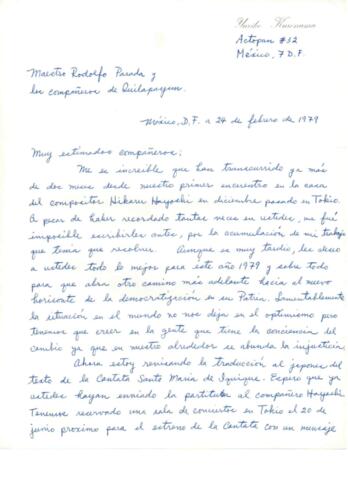 Yuriko Kuronuma
Actopan #32
México, 7 D.F.
Maestro Rodolfo Parada y
los compañeros de Quilapayun.
México, D.F. a 24 de febrero de 1979
Muy estimados compañeros:
Me es increible que han transcurrido ya más
de dos meses desde nuestro primer encuentro en la casa
del compositor Hikaru Hayashi en diciembre pasado en Tokio.
A pesar de haber recordado tantas veces en ustedes, me fué
imposible escribirles antes, por la acumulación de mi trabajo
que tenía que resolver. Aunque es muy tardío, les deseo
a ustedes todo lo mejor para este año 1979 y sobre todo
para que abra otro camino más adelante hacia el nuevo
horizonte de la democratización en su Patria. Lamentablemente
la situación en el mundo no nos deja en el optimismo pero
tenemos que creer en la gente que tiene la conciencia del
cambio ya que en nuestro alrededor se abunda la injusticia.
Ahora estoy revisando la traducción al japones del
texto de la Cantata Santa María de Iquique. Espero que ya
ustedes hayan enviado la partitura al compañero Hayashi.
Tenemos reservado una sala de conciertos en Tokio el 20 de
junio proximo para el estreno de la Cantata con un mensaje